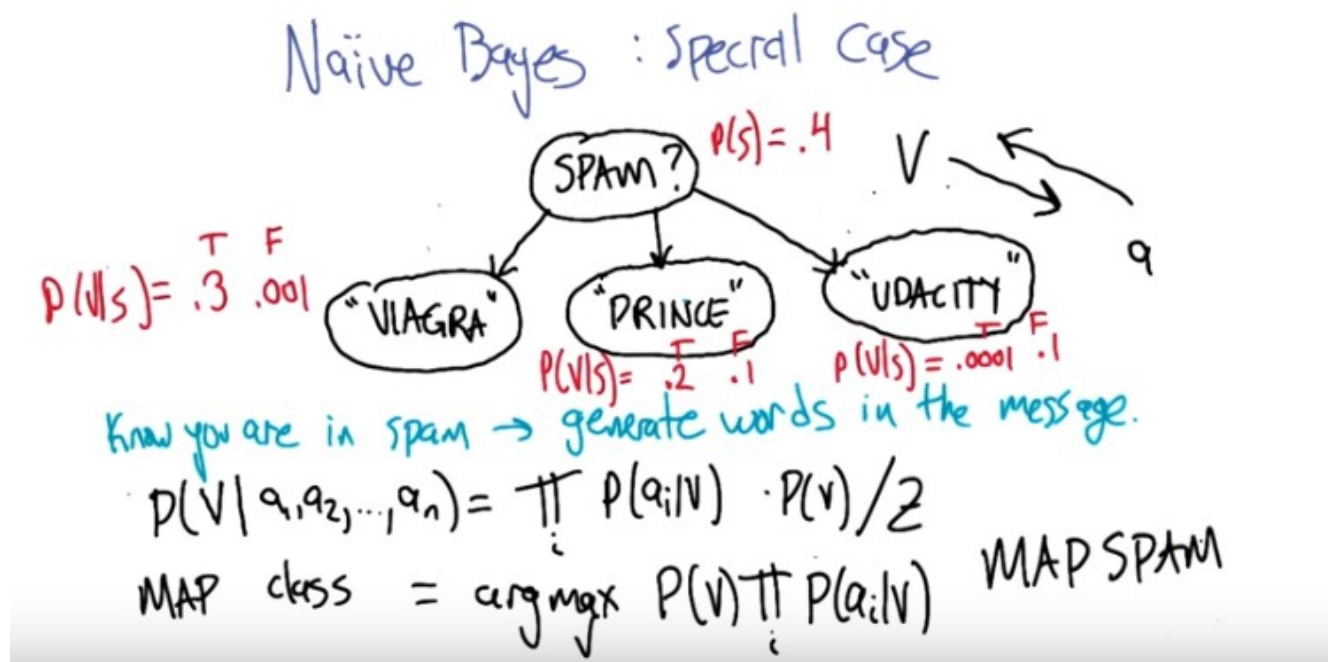 Naïve Bayes : Special Case
SPAM?
P(S)= .4
V
a
T F
P(V|S)= .3 .001
"VIAGRA"
"PRINCE"
T F
P(V|S)= .2 .1
"UDACITY"
T F
P(V|S)= .0001 .1
Know you are in spam → generate words in the message.
P(V|a₁,a₂,...,aₙ)= ∏ᵢ P(aᵢ|V) · P(V)/Z
MAP class = argmax P(V)∏ᵢ P(aᵢ|V)
MAP SPAM